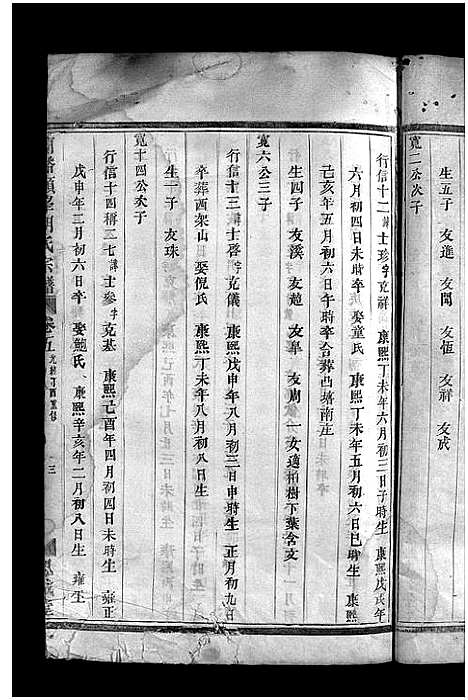 生五子　友進　友閩　友恆　友祥　友成
寬二公次子
行信十二諱士珍字克祥　康熙丁未年六月初三日子時生　康熙戊戌年
六月初四日未時卒　娶童氏　康熙丁未年五月初六日巳時生　康熙
己亥年五月初六日午時卒合葬凹塘南庄
生四子　友溪　友趙　友阜　友周　一女適柏樹下葉含文
寬六公三子
行信十三諱士啓字克儀　康熙戊申年八月初三日申時生　正月初九日
卒葬西架山　娶倪氏　康熙丁未年八月初八日生
生一子　友珠
寬十四公次子
行信十四稱二七諱士參字克基　康熙己酉年四月初四日未時生　雍正
戊申年三月初六日卒　娶鮑氏　康熙辛亥年二月初八日生　雍正
氏宗譜　卷五　光緒丁酉重修　三